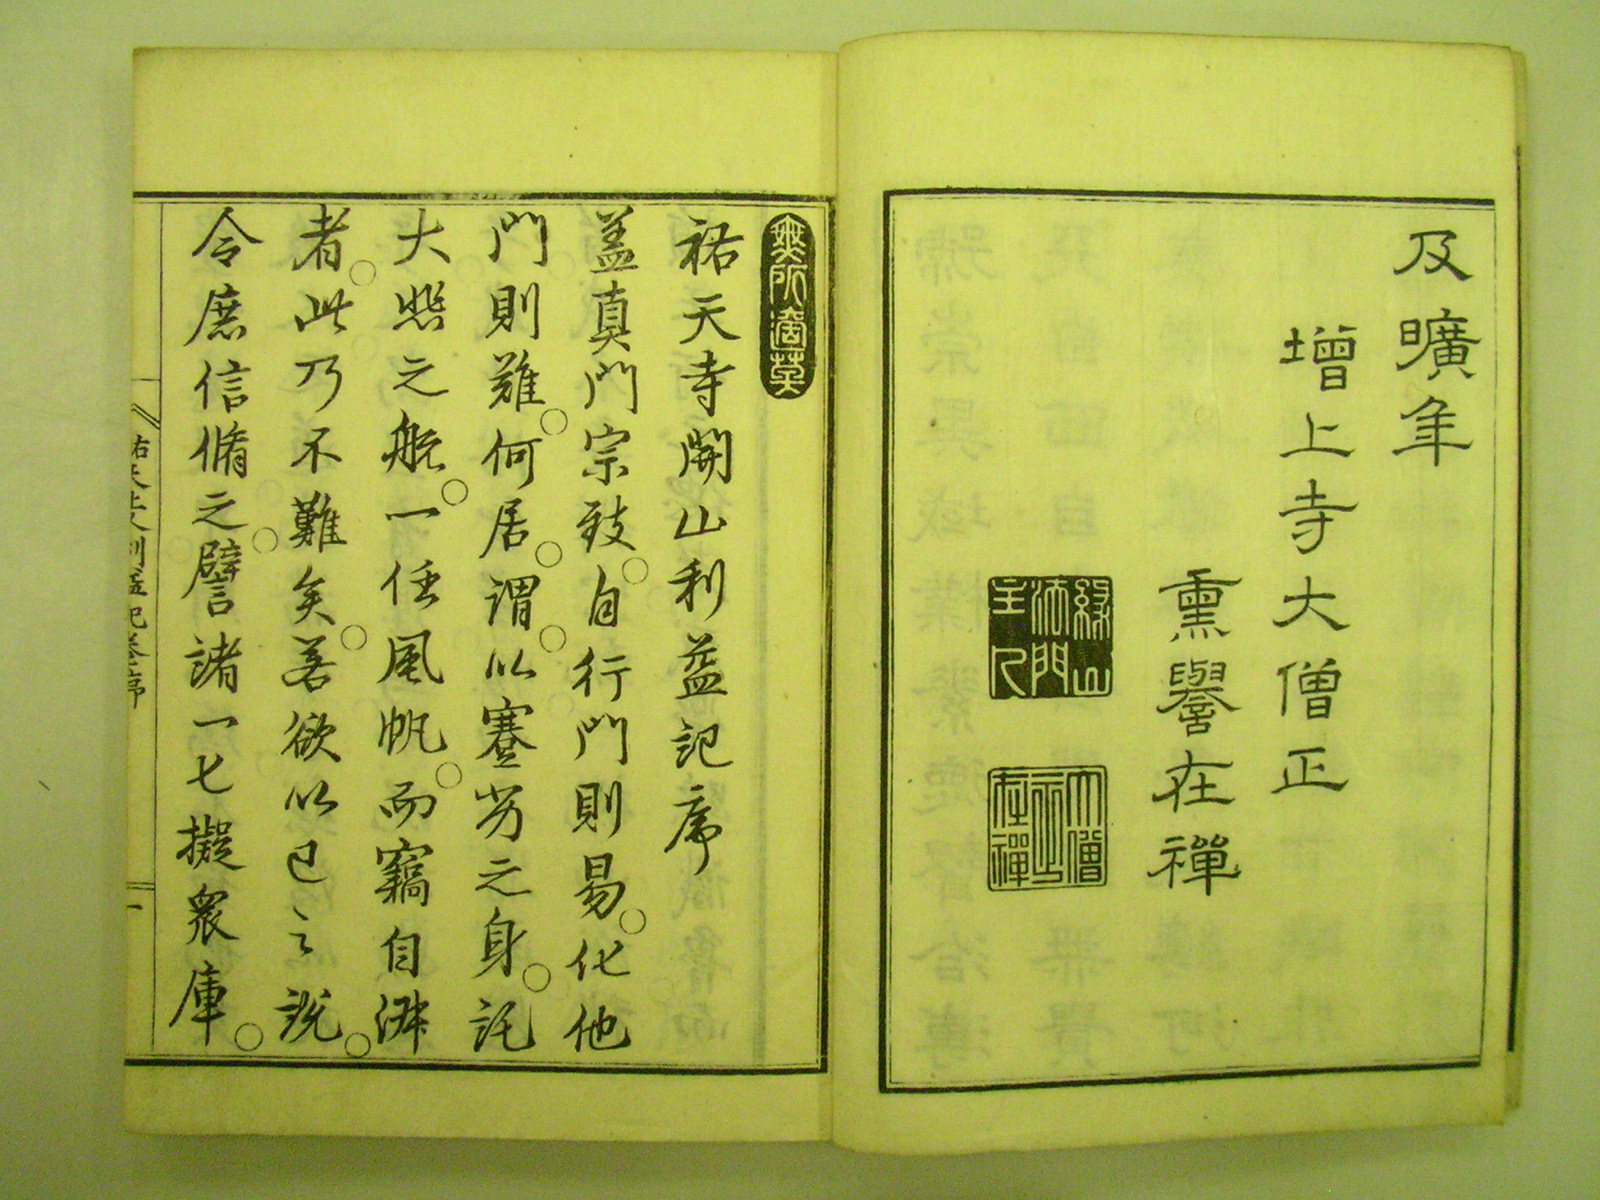 及曠年
增上寺大僧正
熏譽在禪
緣山法門主人
大僧正在禪
無所適莫
祐天寺開山利益記序
蓋真門宗致自行門則易化他
門則難何居謂以蹇劣之身託
大照之舩一任風帆而竊自游
者此乃不難矣若欲以已之說
令庶信脩之譬諸一七擬衆庫
祐天上人利益記卷上序
一